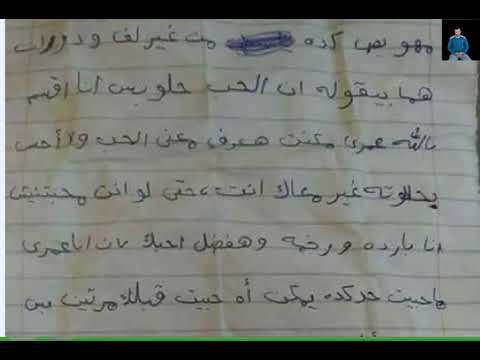 مهو بص كده من غير لف ودوران
هما بيقوله ان الحب حلو بس انا اقسم
بالله عمرى مكنت هعرف معنى الحب ولا أحس
بحلاوته غير معاك انت، حتى لو انت محبتنيش
انا بارده ورخمه وهفضل احبك لان انا عمرى
ماحبيت حد كده يمكن أه حبيت قبلك مرتين بس